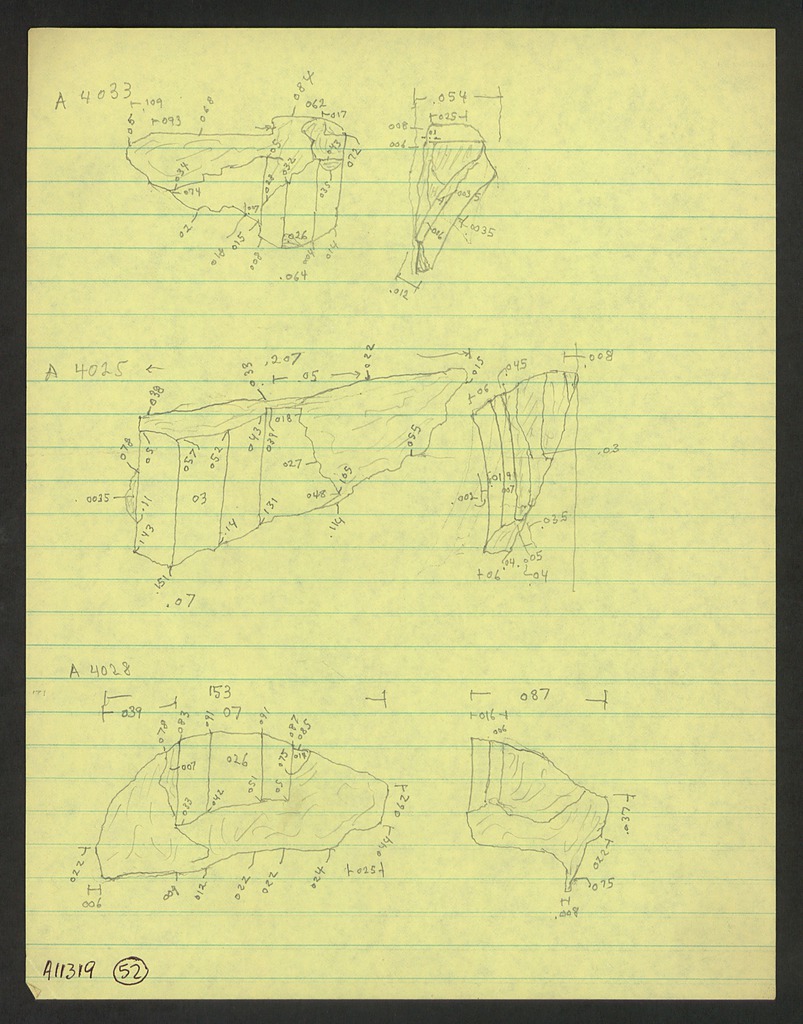 A 4033
.109
.093
.068
.084
.062
.017
.05
.05
.043
.072
.034
.074
.032
.035
.02
.018
.015
.008
.026
.014
.064
.054
.025
.008
.006
.0035
.0035
.006
.012
A 4025
.207
.05
.022
.015
.038
.045
.008
.06
.078
.05
.057
.052
.043
.039
.018
.055
.027
.105
.048
.03
.03
.0035
.11
.143
.14
.131
.114
.151
.07
.002
.007
.035
.05
.04
.06
.04
A 4028
153
.039
07
.078
.083
.091
.091
.087
.085
.007
026
.075
.033
.042
.051
.05
.062
.049
.022
.006
.009
.012
.022
.022
.024
.025
087
.016
.006
.037
.022
.075
.008
A11319 52